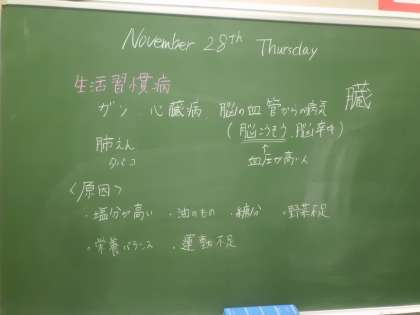 November 28th Thursday
生活習慣病
ガン 心臓病 脳の血管からの病気 臓
肺えん (脳こうそく、脳卒中)
タバコ ↑
血圧が高い人
<原因>
・塩分が高い ・油のもの ・糖分 ・野菜不足
・栄養バランス ・運動不足